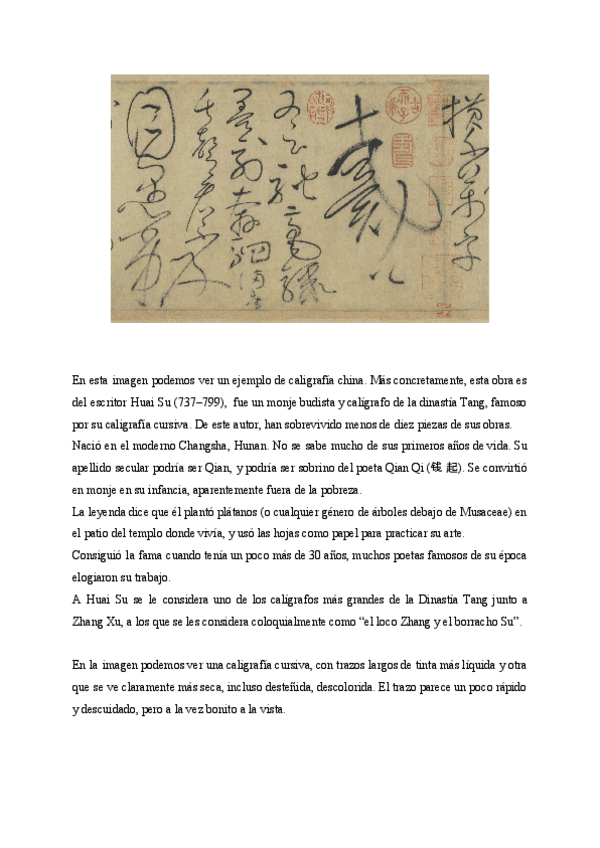 En esta imagen podemos ver un ejemplo de caligrafía china. Más concretamente, esta obra es
del escritor Huai Su (737–799), fue un monje budista y calígrafo de la dinastía Tang, famoso
por su caligrafía cursiva. De este autor, han sobrevivido menos de diez piezas de sus obras.
Nació en el moderno Changsha, Hunan. No se sabe mucho de sus primeros años de vida. Su
apellido secular podría ser Qian, y podría ser sobrino del poeta Qian Qi (钱 起). Se convirtió
en monje en su infancia, aparentemente fuera de la pobreza.
La leyenda dice que él plantó plátanos (o cualquier género de árboles debajo de Musaceae) en
el patio del templo donde vivía, y usó las hojas como papel para practicar su arte.
Consiguió la fama cuando tenía un poco más de 30 años, muchos poetas famosos de su época
elogiaron su trabajo.
A Huai Su se le considera uno de los calígrafos más grandes de la Dinastía Tang junto a
Zhang Xu, a los que se les considera coloquialmente como “el loco Zhang y el borracho Su”.
En la imagen podemos ver una caligrafía cursiva, con trazos largos de tinta más líquida y otra
que se ve claramente más seca, incluso desteñida, descolorida. El trazo parece un poco rápido
y descuidado, pero a la vez bonito a la vista.